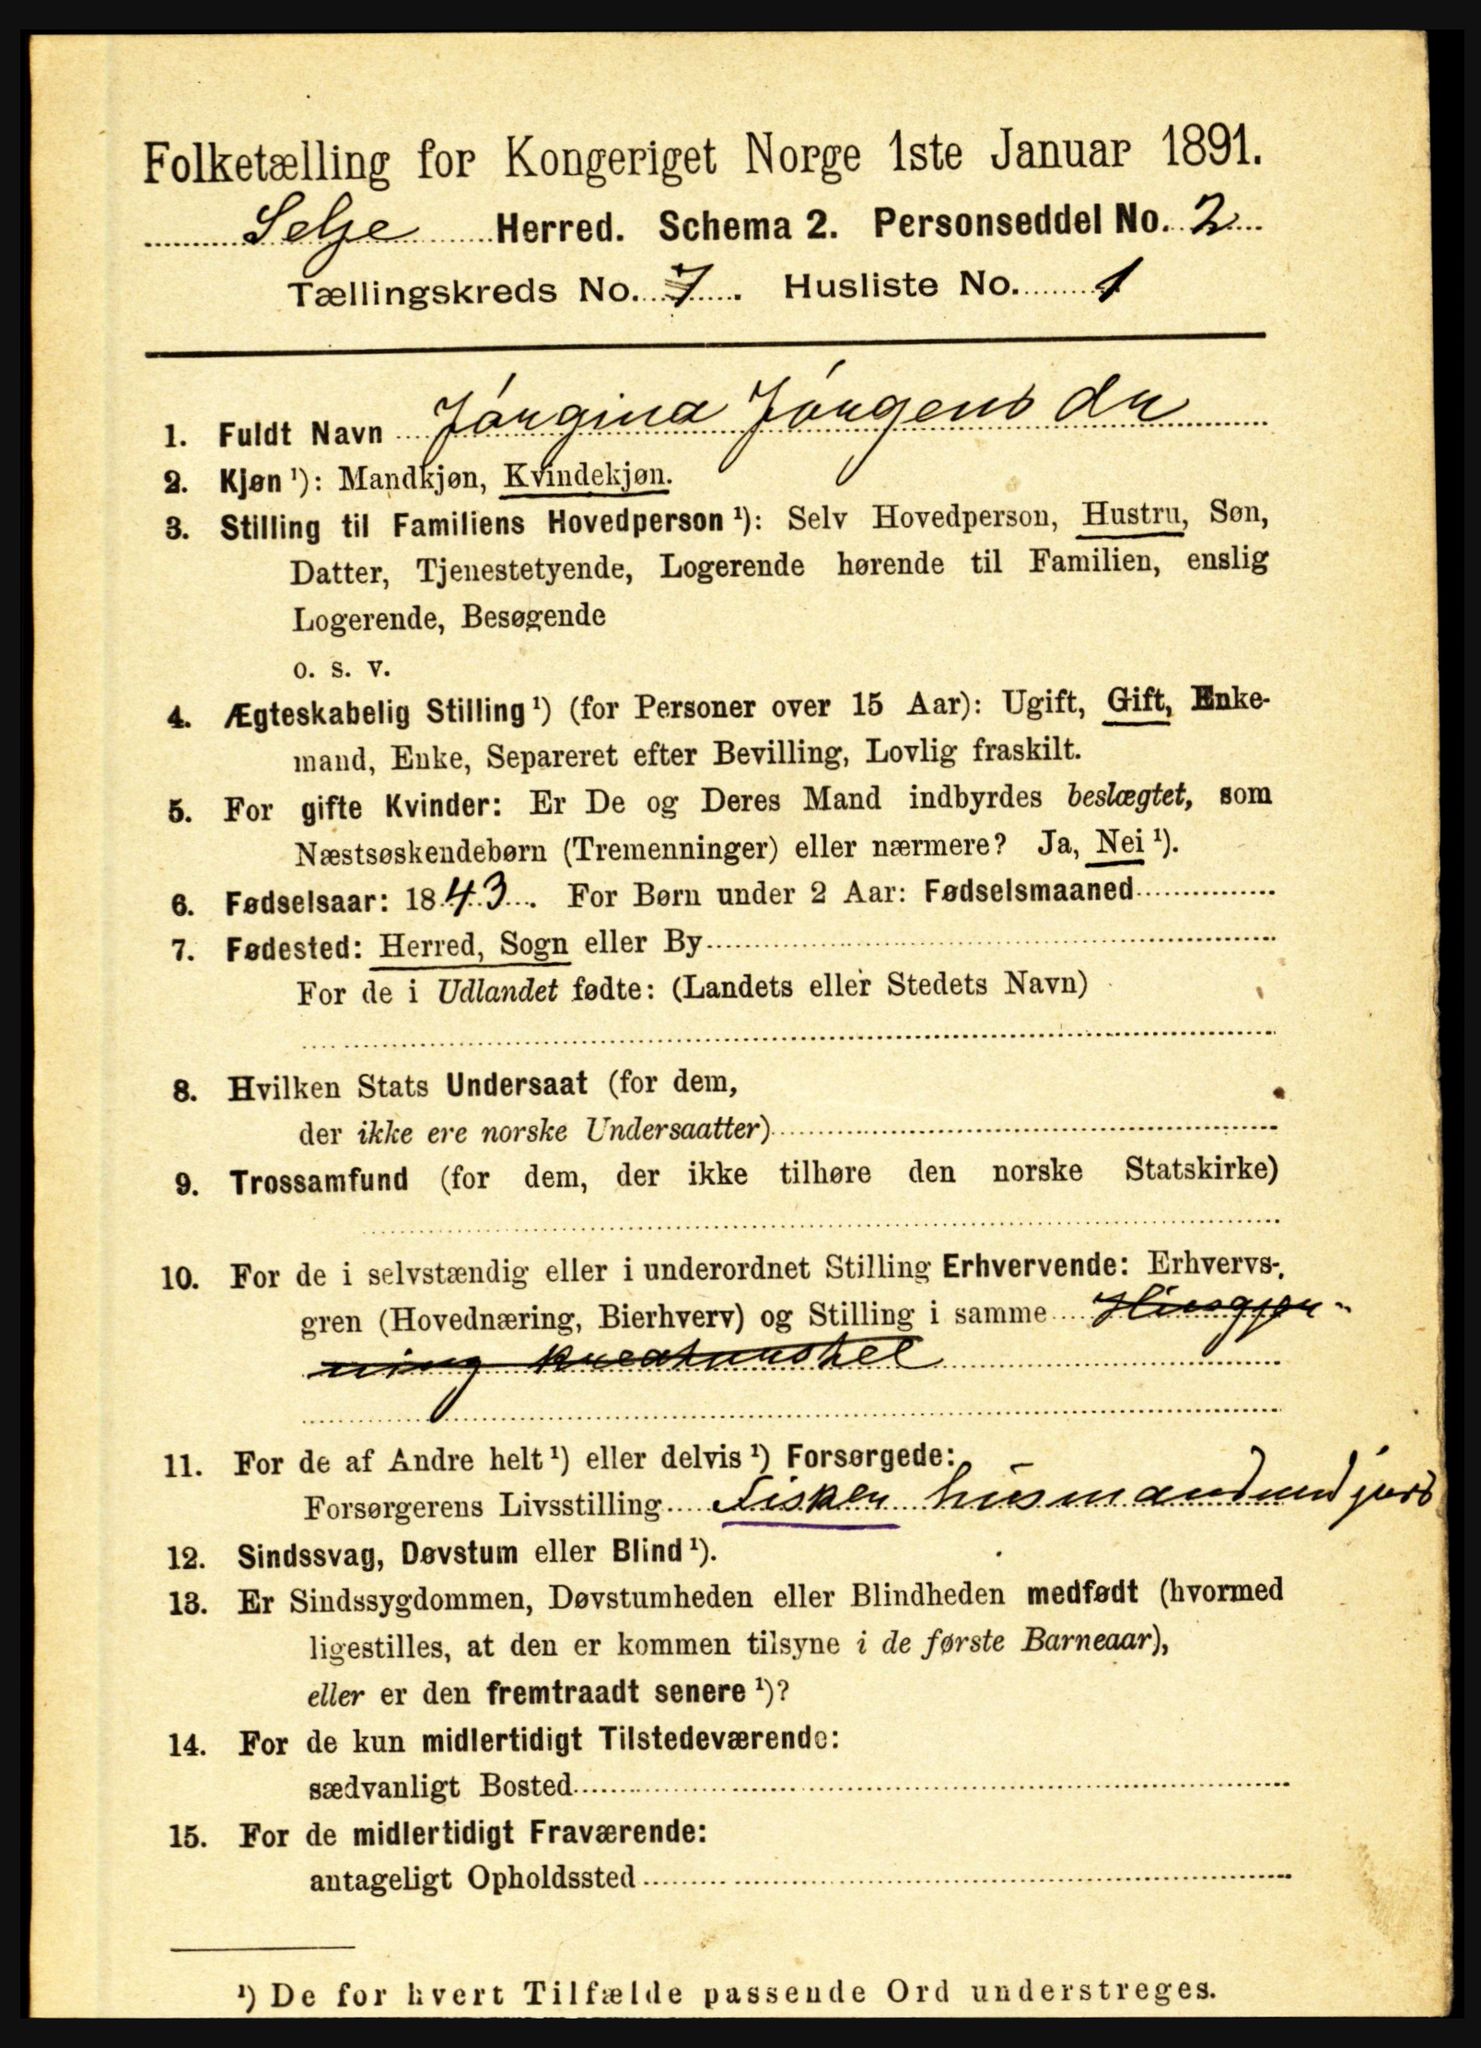 Folketælling for Kongeriget Norge 1ste Januar 1891.
Selje Herred. Schema 2. Personseddel No. 2
Tællingskreds No. 7. Husliste No. 1
1. Fuldt Navn Jórgina Jórgensdr
2. Kjøn ¹): Mandkjøn, Kvindekjøn.
3. Stilling til Familiens Hovedperson ¹): Selv Hovedperson, Hustru, Søn,
Datter, Tjenestetyende, Logerende hørende til Familien, enslig
Logerende, Besøgende
o. s. v.
4. Ægteskabelig Stilling ¹) (for Personer over 15 Aar): Ugift, Gift, Enke-
mand, Enke, Separeret efter Bevilling, Lovlig fraskilt.
5. For gifte Kvinder: Er De og Deres Mand indbyrdes beslægtet, som
Næstsøskendebørn (Tremenninger) eller nærmere? Ja, Nei ¹).
6. Fødselsaar: 1843. For Børn under 2 Aar: Fødselsmaaned
7. Fødested: Herred, Sogn eller By
For de i Udlandet fødte: (Landets eller Stedets Navn)
8. Hvilken Stats Undersaat (for dem,
der ikke ere norske Undersaatter)
9. Trossamfund (for dem, der ikke tilhøre den norske Statskirke)
10. For de i selvstændig eller i underordnet Stilling Erhvervende: Erhvervs-
gren (Hovednæring, Bierhverv) og Stilling i samme Husgjær-
ning kreaturstel
11. For de af Andre helt ¹) eller delvis ¹) Forsørgede:
Forsørgerens Livsstilling Fisker husmand med jord
12. Sindssvag, Døvstum eller Blind ¹).
13. Er Sindssygdommen, Døvstumheden eller Blindheden medfødt (hvormed
ligestilles, at den er kommen tilsyne i de første Barneaar),
eller er den fremtraadt senere ¹)?
14. For de kun midlertidigt Tilstedeværende:
sædvanligt Bosted
15. For de midlertidigt Fraværende:
antageligt Opholdssted
¹) De for hvert Tilfælde passende Ord understreges.